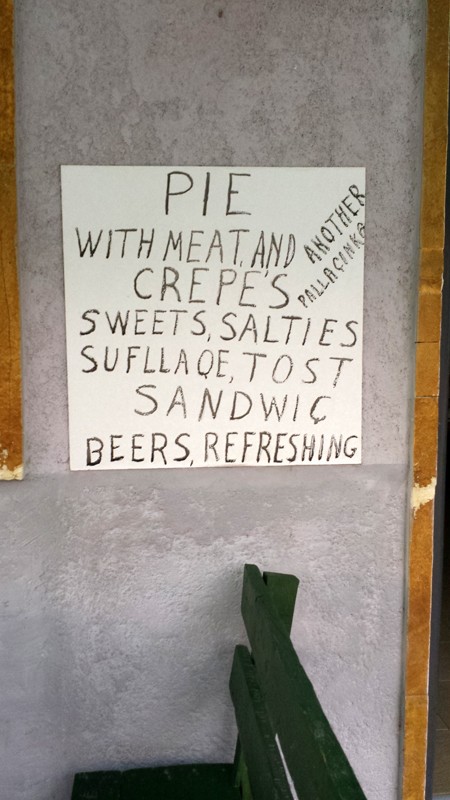 PIE
WITH MEAT, AND
CREPE'S
SWEETS, SALTIES
SUFLLAQE, TOST
SANDWIÇ
BEERS, REFRESHING
ANOTHER
PALLAÇINK@